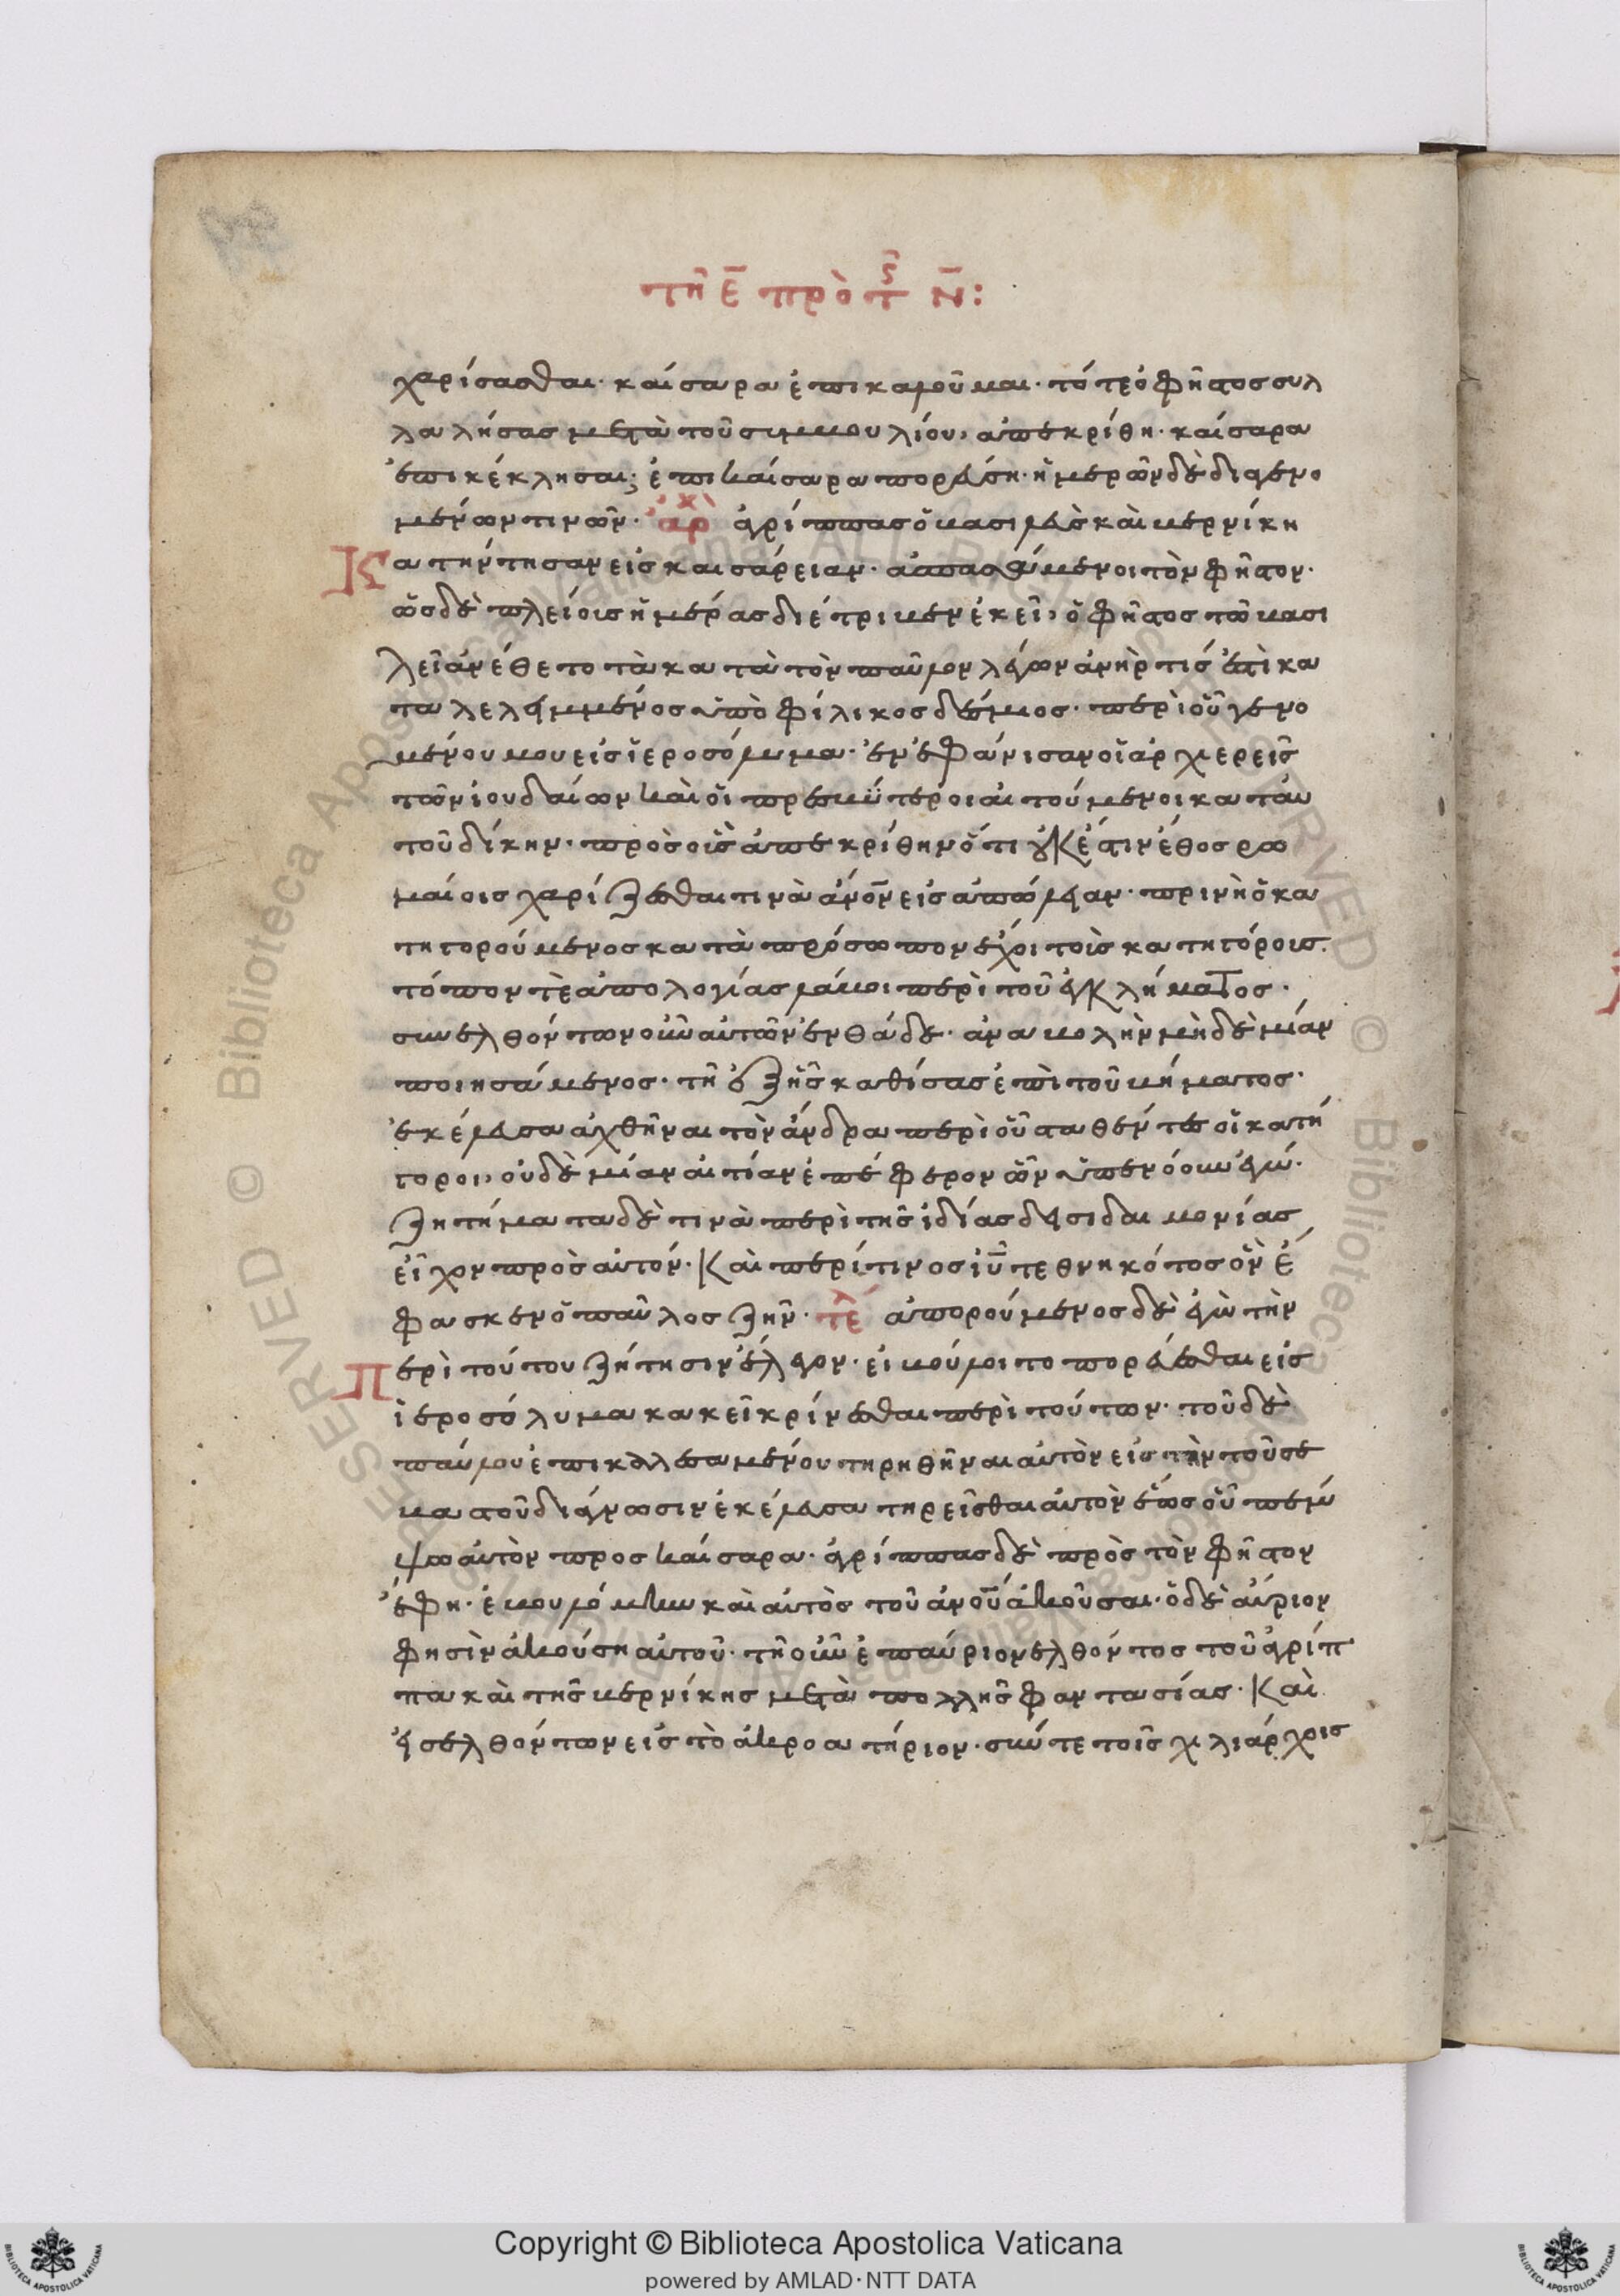 τῆ ε̅ πρὸ τ ς ν̅:
χαρίσασθαι· καίσαρα ἐπικαλοῦμαι· τότε ὁ φῆστος συλ
λαλήσας μετὰ τοῦ συμβουλίου, ἀπεκρίθη· καίσαρα
ἐπικέκλησαι; ἐπὶ καίσαρα πορεύση· ἡμερῶν δὲ διαγενο
μένων τινῶν· αρχ ἀγρίππας ὁ βασιλεὺς καὶ βερνίκη
Κατήντησαν εἰς καισάρειαν· ἀσπασάμενοι τὸν φῆστον·
ὡς δὲ πλείοις ἡμέρας διέτριβεν ἐκεῖ, ὁ φῆστος τῶ βασι
λεῖ ἀνέθετο τὰ κατὰ τὸν παῦλον λέγων ἀνὴρ τίς ἐστὶ κα
ταλελειμμένος ὑπὸ φίλικος δέσμιος· περὶ οὗ γενο
μένου μου εἰς ἱεροσόλυμα· ἐνεφάνισαν οἱ ἀρχιερεῖς
τῶν ἰουδαίων καὶ οἱ πρεσβύτεροι αἰτούμενοι κατ' αὐ
τοῦ δίκην· πρὸς οὓς ἀπεκρίθην ὅτι οὐκ ἔστιν ἔθος ρω
μαίοις χαρίζεσθαι τινὰ ἄνον εἰς ἀπώλειαν· πρινὴ ὁ κα
τηγορούμενος κατὰ πρόσωπον ἔχοι τοὺς κατηγόρους·
τόπον τὲ ἀπολογίας λάβοι περὶ τοῦ ἐγκλήματος·
συνελθόντων οὖν αὐτῶν ἐνθάδε· ἀναβολὴν μὴδὲ μίαν
ποιησάμενος· τῆ ἑξῆς καθίσας ἐπὶ τοῦ βήματος·
ἐκέλευσα ἀχθῆναι τὸν ἄνδρα περὶ οὗ σταθέντες οἱ κατή
γοροι, οὐδὲ μίαν αἰτίαν ἐπέφερον ὧν ὑπενόουν ἐγώ·
ζητήματα δὲ τινὰ περὶ τῆς ἰδίας δεισιδαιμονίας
εἶχον πρὸς αὐτόν· καὶ περί τινος ἰυ τεθνηκότος ὃν ἔ
φασκεν ὁ παῦλος ζῆν· τέλ ἀπορούμενος δὲ ἐγὼ τὴν
Περὶ τούτου ζήτησιν ἔλεγον· εἰ βούλοιτο πορεύεσθαι εἰς
ἱεροσόλυμα κακεῖ κρίνεσθαι περὶ τούτων· τοῦ δὲ
παύλου ἐπικαλεσαμένου τηρηθῆναι αὐτὸν εἰς τὴν τοῦ σε
βαστοῦ διάγνωσιν ἐκέλευσα τηρεῖσθαι αὐτὸν ἕως οὗ πέμ
ψω αὐτὸν προς καίσαρα· ἀγρίππας δὲ πρὸς τὸν φῆστον
ἔφη· ἐβουλόμην καὶ αὐτὸς τοῦ ἀνοῦ ἀκοῦσαι· ὁ δὲ αὔριον
φησὶν ἀκούση αὐτοῦ· τῆ οὖν ἐπαύριον ἐλθόντος τοῦ ἀγρίπ
πα καὶ τῆς βερνίκης μετὰ πολλῆς φαντασίας· καὶ
εἰσελθόντων εἰς τὸ ἀκροατήριον· σύν τε τοῖς χιλιάρχοις